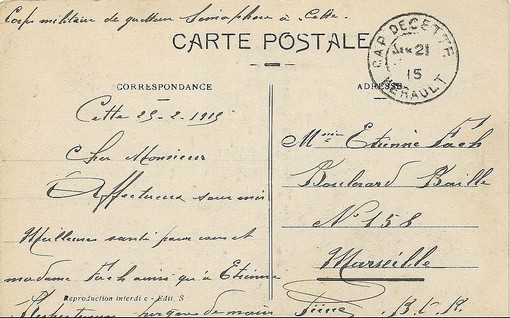 Corps militaire de guetteur Sémaphore à Cette.
CARTE POSTALE
CAP DE CETTE
21
15
HERAULT
CORRESPONDANCE
ADRESSE
Cette 25-2-1915
Cher Monsieur
Affectueux souvenir
Meilleure santé pour vous et
madame Fach ainsi qu'à Etienne
Reproduction interdite - Edit. S
Etienne Fach
Boulevard Baille
N° 158
Marseille
B. d. R.